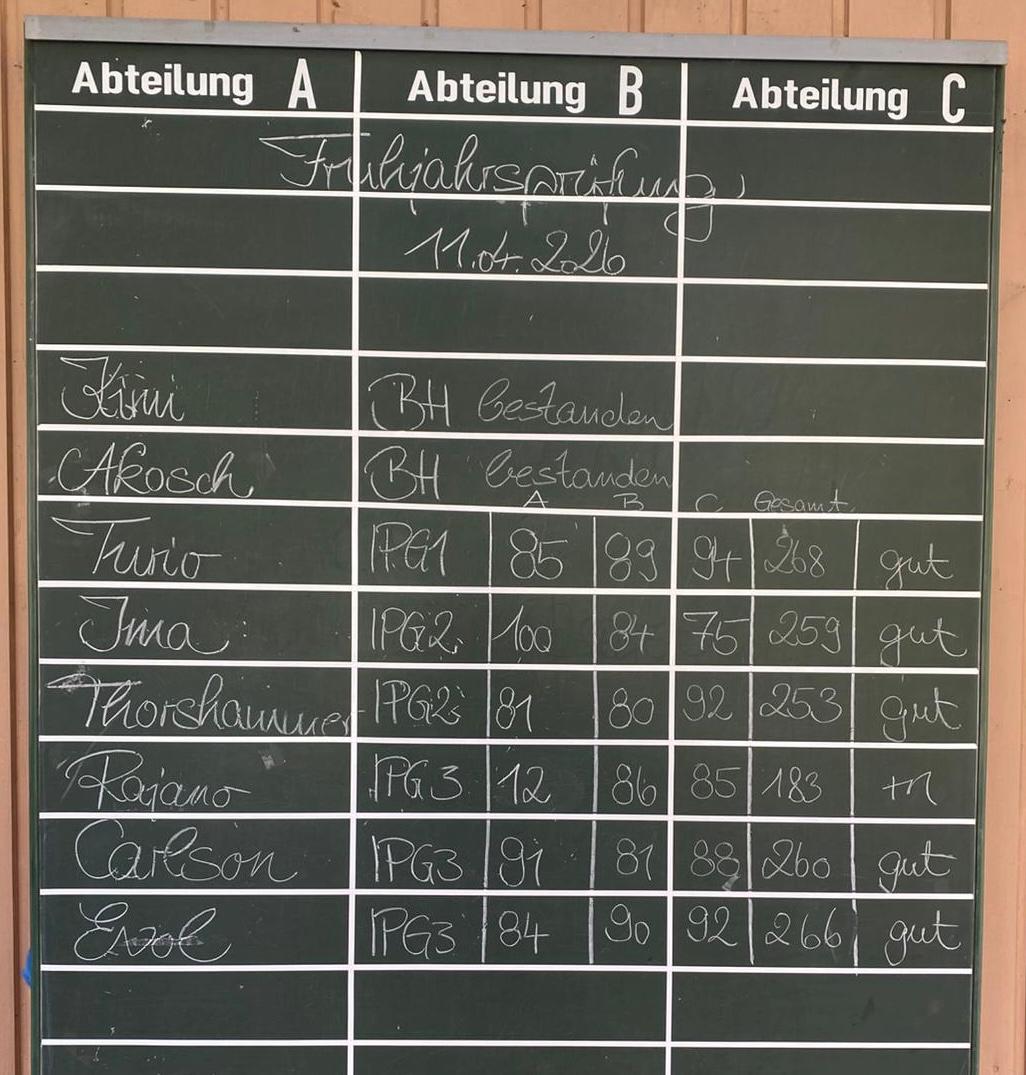 Abteilung A Abteilung B Abteilung C
Frühjahrsprüfung
11.04.2026
Kimi BH bestanden
Akosch BH bestanden
A B C Gesamt
Turio IPG1 85 89 94 268 gut
Ima IPG2 100 84 75 259 gut
Thorshammer IPG2 81 80 92 253 gut
Rajano IPG3 12 86 85 183 m
Carlson IPG3 91 81 88 260 gut
IPG3 84 90 92 266 gut